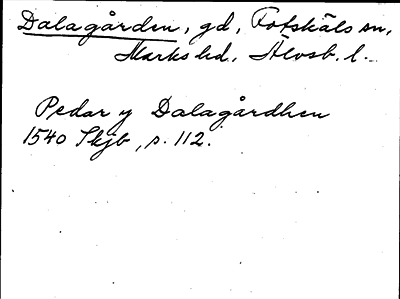 Dalagården, gd, Fotskäls sn,
Marks hd, Älvsb. l.
Pedar y Dalagårdhen
1540 Skjb, s. 112.